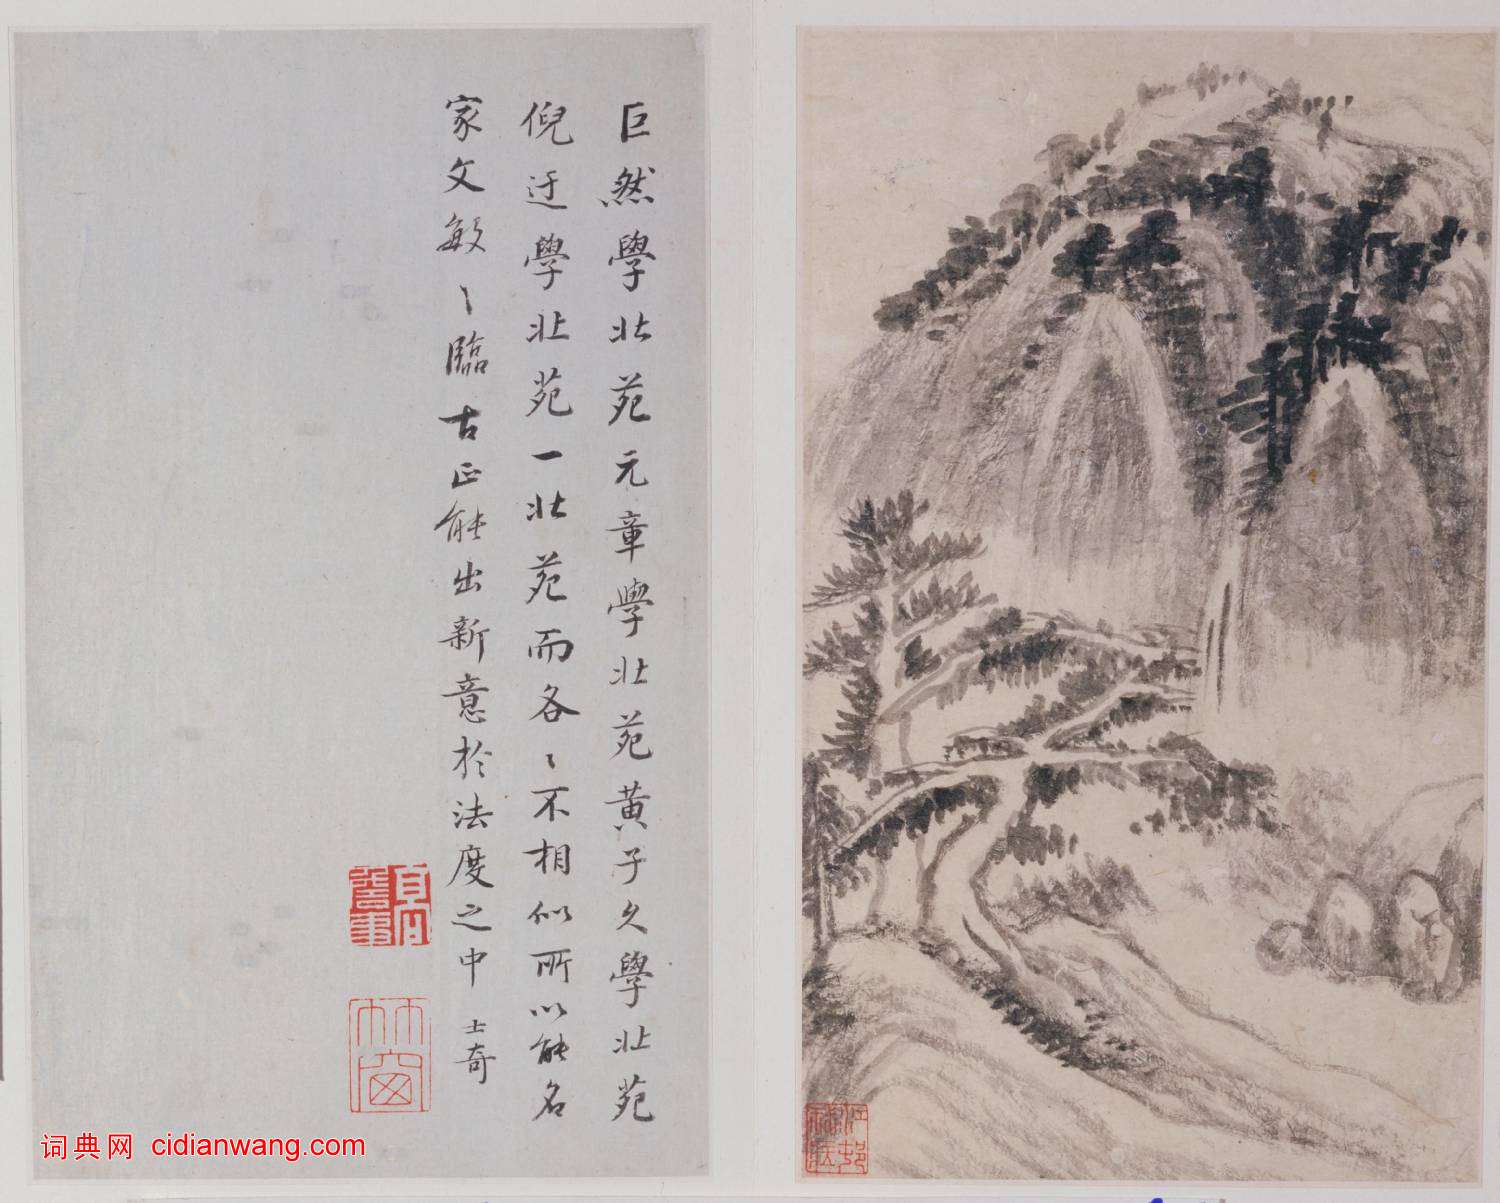 巨然學北苑元章學北苑黃子久學北苑
倪迂學北苑一北苑而各〻不相似所以能名
家文敏〻臨古正能出新意於法度之中
士奇
竹窗
词典网 cidianwang.com